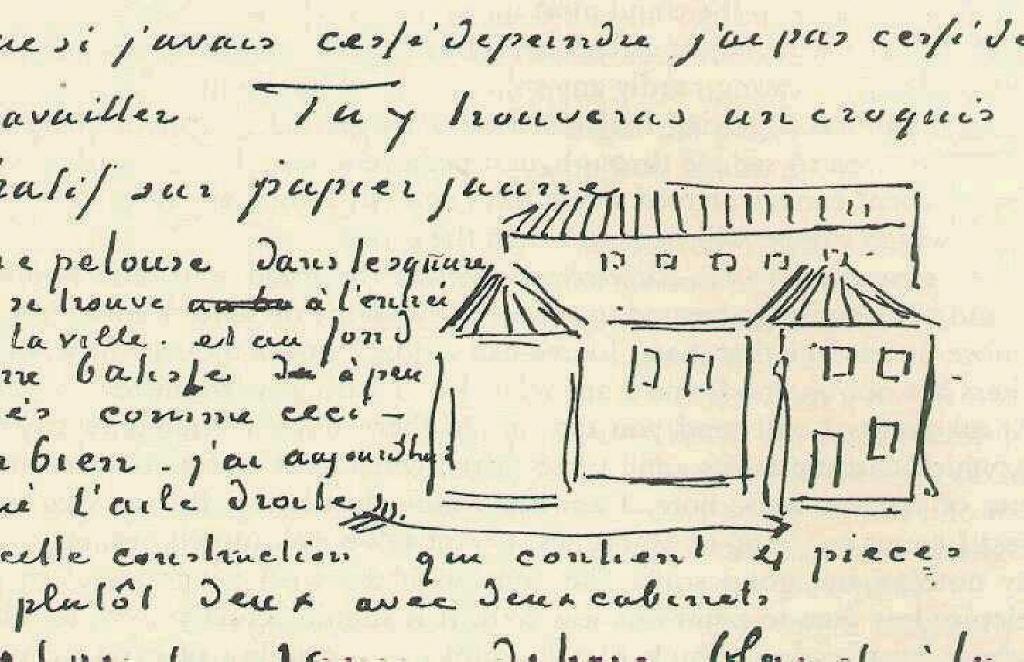 que si j'avais cessé de peindre j'ai pas cessé de
travailler Tu y trouveras un croquis
hatif sur papier jaune
ne pelouse dans le square
se trouve à l'entrée
la ville. et au fond
une batisse à peu
ès comme ceci –
bien. j'ai aujourd'hui
é l'aile droite
cette construction qui contient 4 pieces
plutôt deux avec deux cabinets